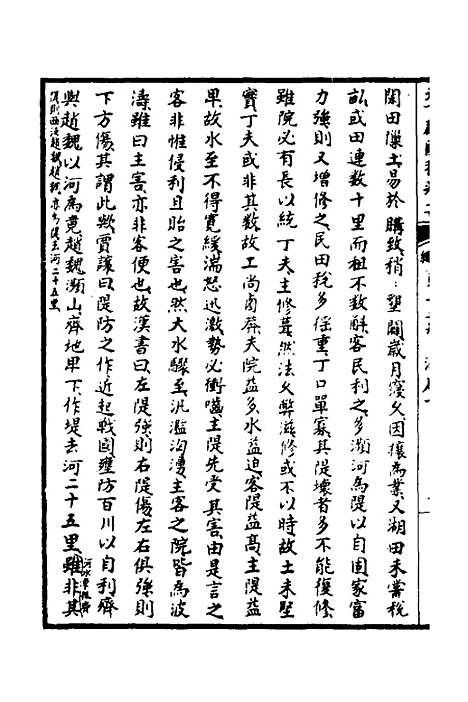 閑田隟土易於購致稍稍墾闢歲月寖久因攘為業又湖田未嘗稅
畝或田連數十里而租不數斛客民利之多瀕河為隄以自固家富
力強則又增修之民田稅多徭重丁口單寡其隄壞者多不能復修
雖院必有長以統丁夫主修葺然法久弊滋修或不以時故土未堅
實丁夫或非其數故工尚鹵莽夫院益多水益迫客隄益高主隄益
卑故水至不得寬緩湍怒迅激勢必衝嚙主隄先受其害由是言之
客非惟侵利且貽之害也然大水驟至汎濫洶湧主客之院皆為波
濤雖曰主害亦非客便也故漢書曰左隄強則右隄傷左右俱強則
下方傷其謂此歟賈讓曰隄防之作近起戰國壅防百川以自利齊
與趙魏以河為竟趙魏瀕山齊地卑下作堤去河二十五里河水東抵齊隄則西泛趙魏趙魏亦為隄去河二十五里雖非其